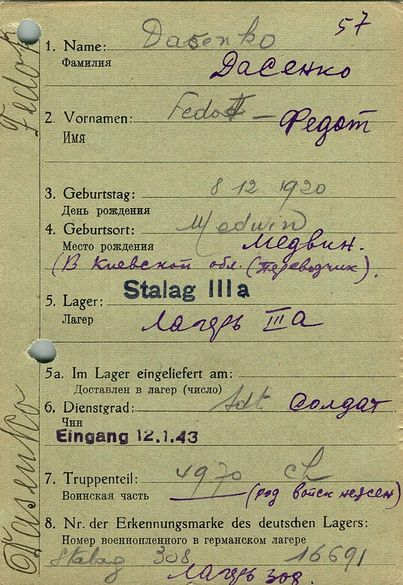 57
Fedot
1. Name: Dasenko
Фамилия Дасенко
2. Vornamen: Fedot – Федот
Имя
3. Geburtstag: 8 12 1920
День рождения
4. Geburtsort: Medwin
Место рождения Медвин.
(В Киевской обл. (переводчик).
5. Lager: Stalag IIIa
Лагерь Лагерь IIIА
5a. Im Lager eingeliefert am:
Доставлен в лагерь (число)
6. Dienstgrad: Sdt Солдат
Чин
Eingang 12.1.43
7. Truppenteil: 4970
Воинская часть (род войск неясен)
8. Nr. der Erkennungsmarke des deutschen Lagers:
Номер военнопленного в германском лагере
Stalag 308 16691
Лагерь 308.
Dasenko